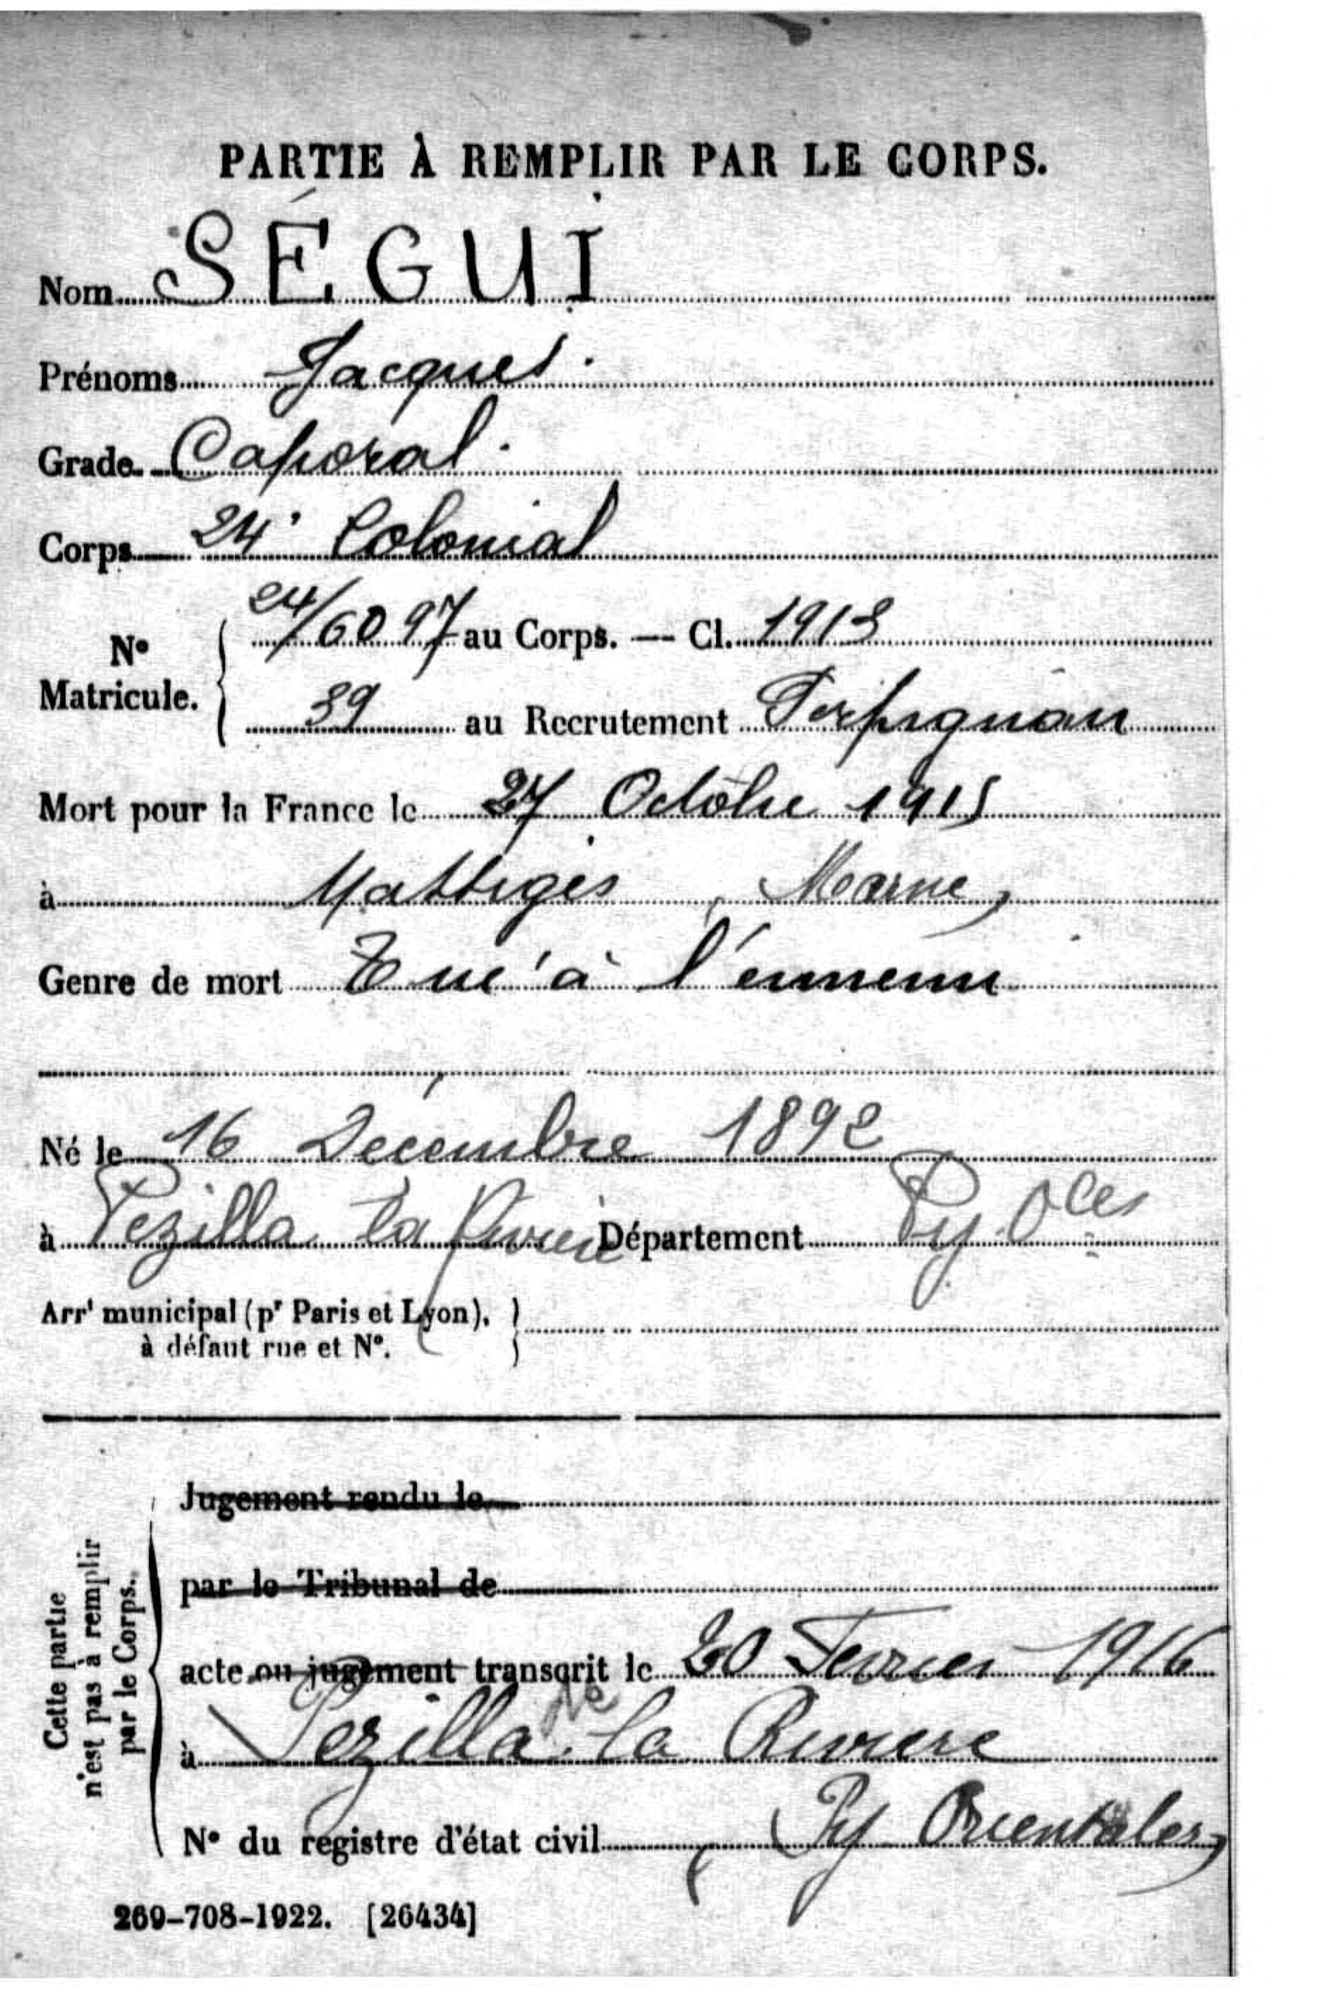 PARTIE À REMPLIR PAR LE CORPS.
Nom SÉGUI
Prénoms Jacques
Grade Caporal
Corps 24e Colonial
Nº Matricule. 24/6097 au Corps. — Cl. 1913
39 au Recrutement Perpignan
Mort pour la France le 27 Octobre 1915
à Massiges (Marne)
Genre de mort Tué à l'ennemi
Né le 16 Décembre 1892
à Pezilla la Rivière Département Py Oles
Arrt municipal (pr Paris et Lyon),
à défaut rue et Nº.
Cette partie
n'est pas à remplir
par le Corps.
Jugement rendu le
par le Tribunal de
acte ou jugement transcrit le 20 Fevrier 1916
à Pezilla de la Riviere
Nº du registre d'état civil (Py Orientales)
269-708-1922. [26434]